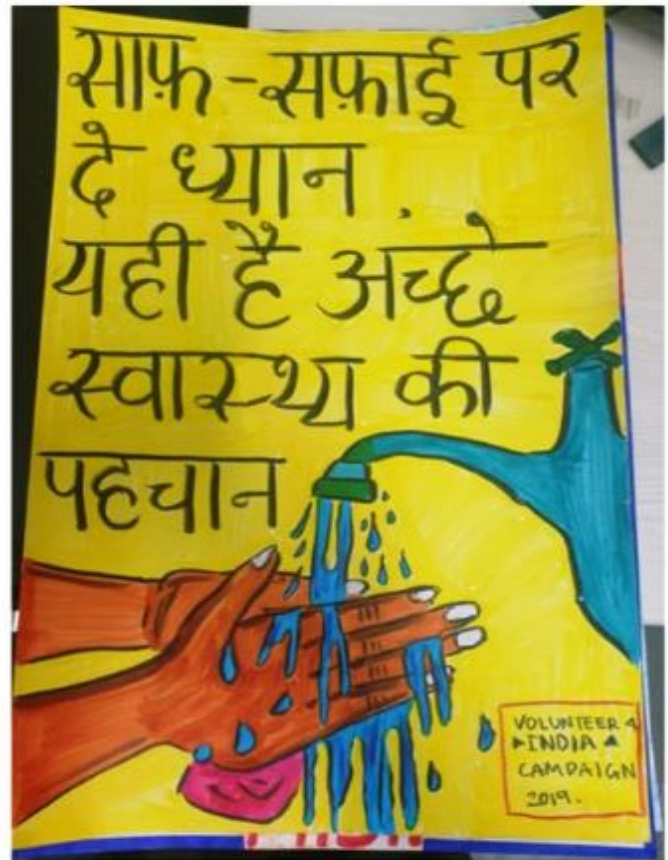 साफ़-सफ़ाई पर
दे ध्यान .
यही है अच्छे
स्वास्थ्य की
पहचान
VOLUNTEER 4
INDIA
CAMPAIGN
2019.